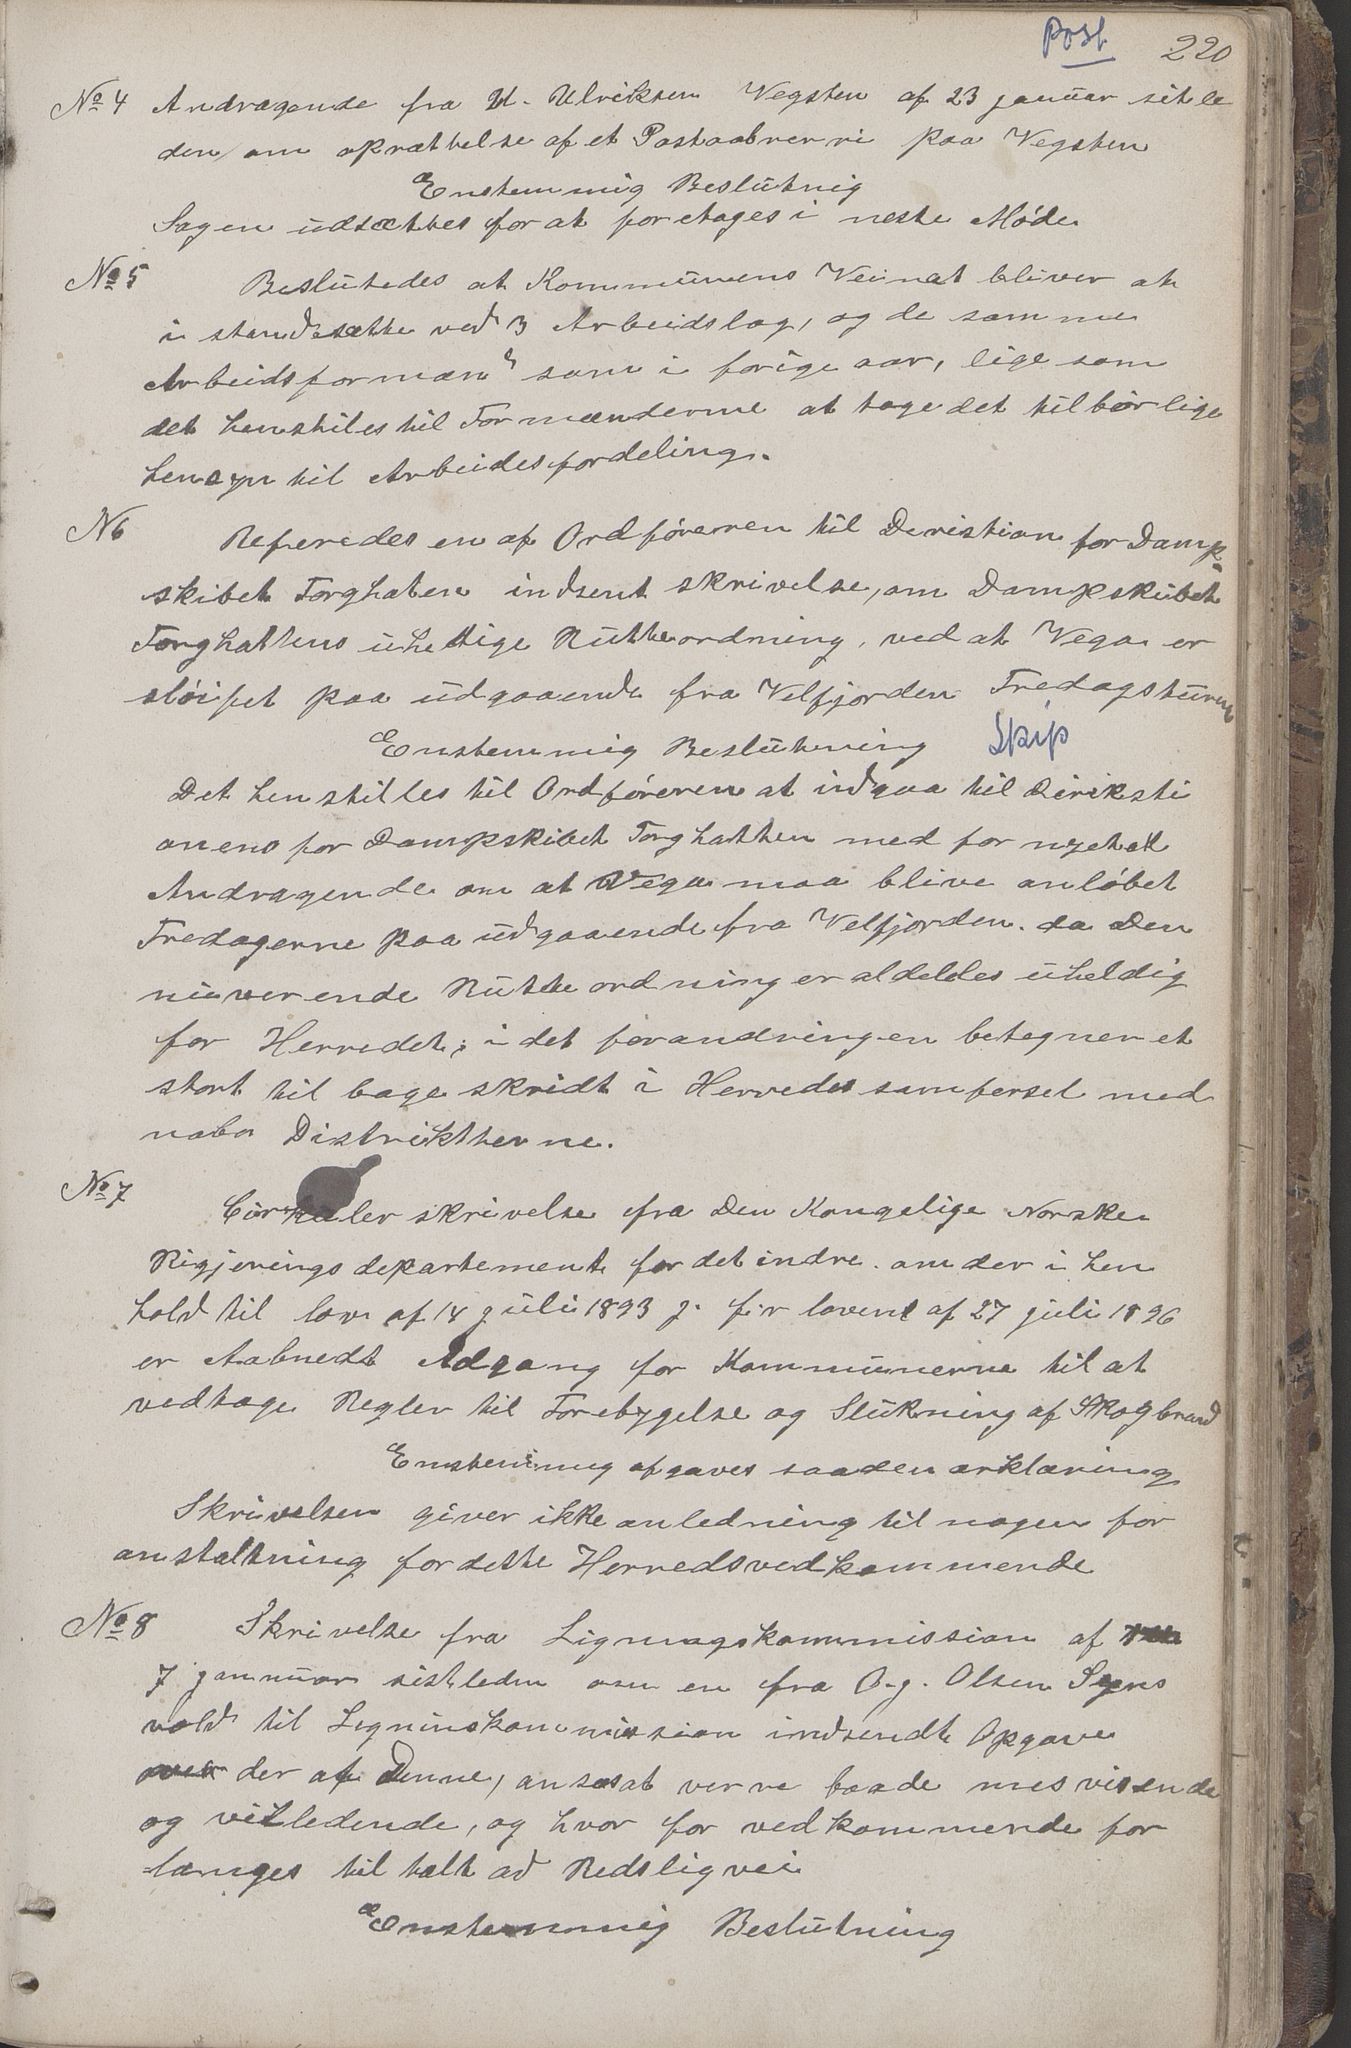 Post 220
No 4 Andragende fra U. Ulriksen Vegsten af 23 januar sitle
den om oprættelse af et Postaabneri paa Vegsten
Enstemmig Beslutnig
Sagen udsættes for at foretages i neste Møde
No 5 Beslutedes at Kommunens Veinæt bliver at
i standsætte ved 3 Arbeidslag, og de samme
Arbeidsformæn som i forige aar, lige som
det henstiles til Formænderne at tage det tilbørlige
hensyn til Arbeidesfordeling.
N 6 Referedes en af Ordføreren til Deristion for Damp
skibet Torghaten indsent skrivelse, om Dampskibet
Torghattens uheldige Rutteordning, ved at Vega er
sløifet paa udgaaende fra Velfjorden Fredagsturen
Enstemmig Beslutning Skip
Det henstilles til Ordføreren at indgaa til Diriksti
onens for Dampskibet Torghatten med fornyetet
Andragende om at Vega maa blive anløbet
Fredagerne paa udgaaende fra Velfjorden. da Den
nuverende Rutteordning er aldeldes uheldig
for Herredet; i det forandringen betegner et
stort til bage skridt i Herredes samfersel med
nabo Distriktherne.
No 7 Cirkulerskrivelse fra Den Kongelige Norske
Rigjerings departement for det indre. om der i hen
hold til lov af 14 juli 1893 j. fr loven af 27 juli 1896
er Aabnedt Adgang for Kommunerne til at
vedtage Regler til Forebygelse og Slukning af Skogbrand
Enstemmig afgaves saaden ærklæring
Skrivelsen giver ikke anledning til nogen for
anstaltning for dette Herredsvedkommende
No 8 Skrivelse fra Ligningskommission af
7 januar sistleden om en fra O. J. Olsen
vold til Ligninskommission indsendt Opgave
der af Denne, ansaat verre baade misvisende
og villedende, og hvor for vedkommende for
langes til talt ad Retsligvei
Enstemmig Beslutning